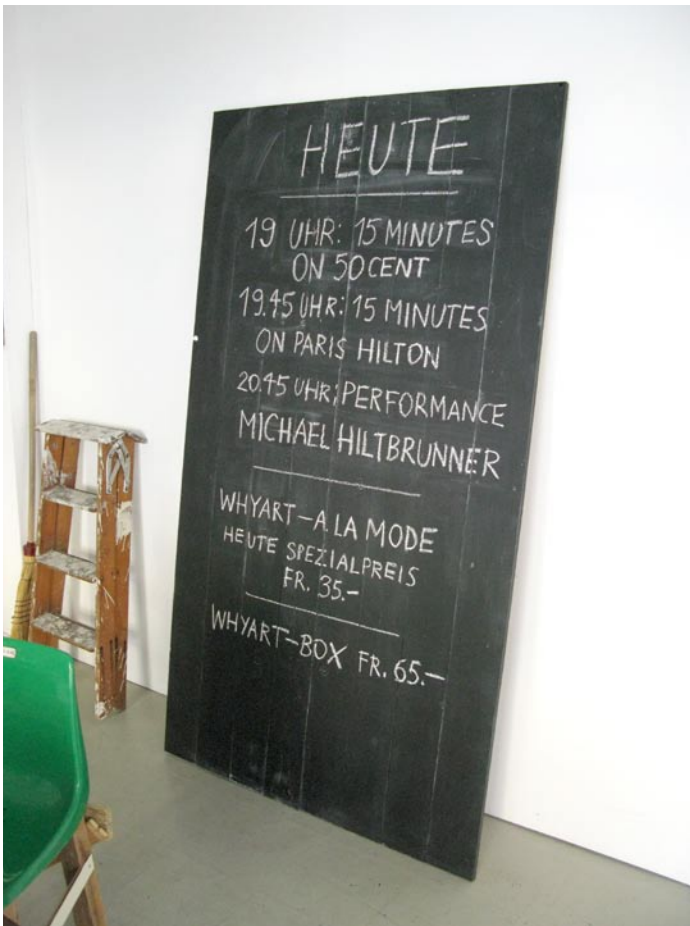 HEUTE
19 UHR: 15 MINUTES
ON 50 CENT
19.45 UHR: 15 MINUTES
ON PARIS HILTON
20.45 UHR: PERFORMANCE
MICHAEL HILTBRUNNER
WHYART–A LA MODE
HEUTE SPEZIALPREIS
FR. 35.–
WHYART–BOX FR. 65.–